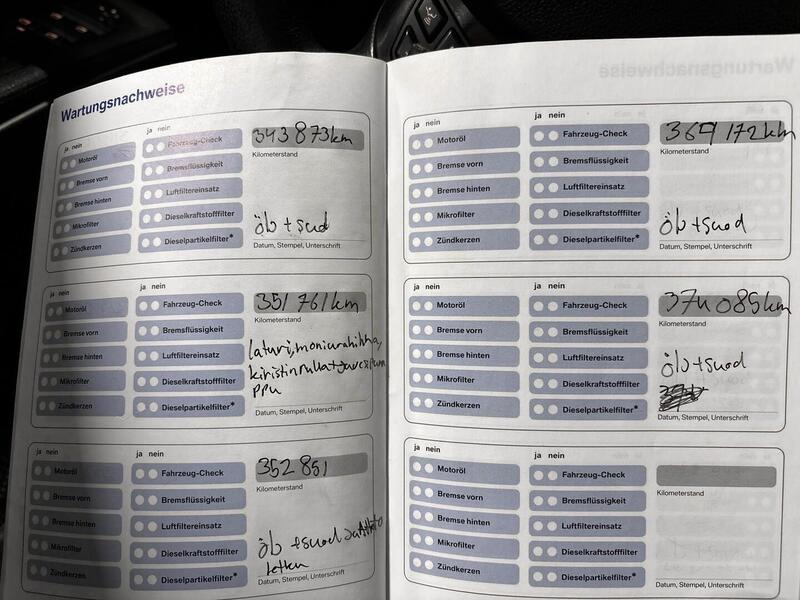 Wartungsnachweise
ja nein
Motoröl
Bremse vorn
Bremse hinten
Mikrofilter
Zündkerzen
ja nein
Fahrzeug-Check
Bremsflüssigkeit
Luftfiltereinsatz
Dieselkraftstofffilter
Dieselpartikelfilter*
343 873km
Kilometerstand
öb + sud
Datum, Stempel, Unterschrift
ja nein
Motoröl
Bremse vorn
Bremse hinten
Mikrofilter
Zündkerzen
ja nein
Fahrzeug-Check
Bremsflüssigkeit
Luftfiltereinsatz
Dieselkraftstofffilter
Dieselpartikelfilter*
351 761km
Kilometerstand
laturi, moniurahihna,
PPU
Datum, Stempel, Unterschrift
ja nein
Motoröl
Bremse vorn
Bremse hinten
Mikrofilter
Zündkerzen
ja nein
Fahrzeug-Check
Bremsflüssigkeit
Luftfiltereinsatz
Dieselkraftstofffilter
Dieselpartikelfilter*
352 851
Kilometerstand
öb + suod
Letku
Datum, Stempel, Unterschrift
Wartungsnachweise
ja nein
Motoröl
Bremse vorn
Bremse hinten
Mikrofilter
Zündkerzen
ja nein
Fahrzeug-Check
Bremsflüssigkeit
Luftfiltereinsatz
Dieselkraftstofffilter
Dieselpartikelfilter*
369 172km
Kilometerstand
öb + suod
Datum, Stempel, Unterschrift
ja nein
Motoröl
Bremse vorn
Bremse hinten
Mikrofilter
Zündkerzen
ja nein
Fahrzeug-Check
Bremsflüssigkeit
Luftfiltereinsatz
Dieselkraftstofffilter
Dieselpartikelfilter*
374 085km
Kilometerstand
öb + suod
Datum, Stempel, Unterschrift
ja nein
Motoröl
Bremse vorn
Bremse hinten
Mikrofilter
Zündkerzen
ja nein
Fahrzeug-Check
Bremsflüssigkeit
Luftfiltereinsatz
Dieselkraftstofffilter
Dieselpartikelfilter*
Kilometerstand
Datum, Stempel, Unterschrift